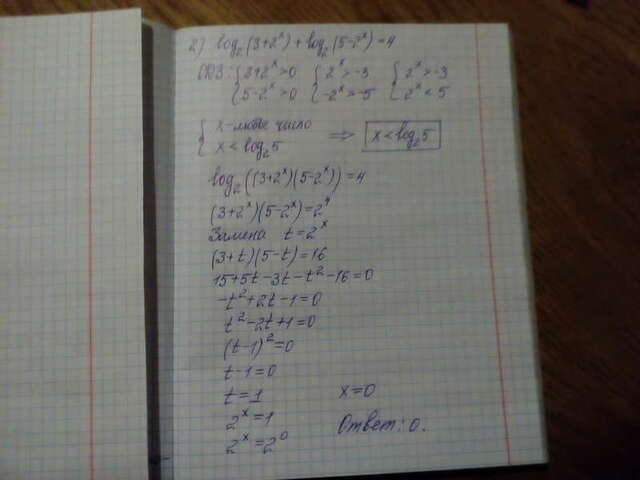 2) log₂(3+2ˣ)+log₂(5-2ˣ)=4
ОДЗ: {3+2ˣ>0 {2ˣ>-3 {2ˣ>-3
{5-2ˣ>0 {-2ˣ>-5 {2ˣ<5
{x-любое число
{x<log₂5 ⇒ x<log₂5
log₂((3+2ˣ)(5-2ˣ))=4
(3+2ˣ)(5-2ˣ)=2⁴
Замена t=2ˣ
(3+t)(5-t)=16
15+5t-3t-t²-16=0
-t²+2t-1=0
t²-2t+1=0
(t-1)²=0
t-1=0
t=1 x=0
2ˣ=1 Ответ: 0.
2ˣ=2⁰